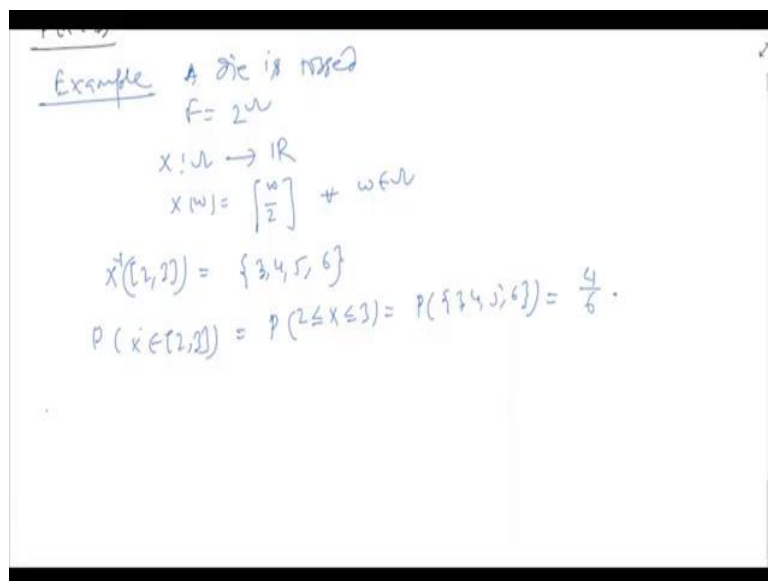 Example A die is tossed
F = 2^Ω
X : Ω → ℝ
X(ω) = ⌈ω/2⌉ ∀ ω ∈ Ω
X⁻¹([2,3]) = {3,4,5,6}
P(X ∈ [2,3]) = P(2 ≤ X ≤ 3) = P({3,4,5,6}) = 4/6.